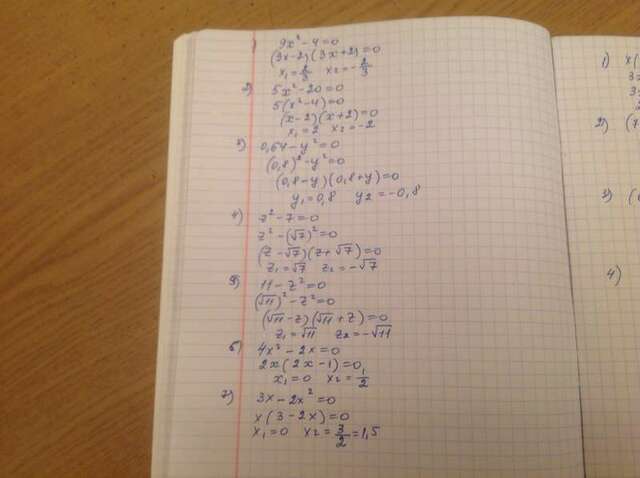 1) 9x² - 4 = 0
(3x-2)(3x+2)=0
x₁ = 2/3 x₂ = -2/3
2) 5x² - 20 = 0
5(x² - 4) = 0
(x-2)(x+2)=0
x₁ = 2 x₂ = -2
3) 0,64 - y² = 0
(0,8)² - y² = 0
(0,8-y)(0,8+y)=0
y₁ = 0,8 y₂ = -0,8
4) z² - 7 = 0
z² - (√7)² = 0
(z-√7)(z+√7)=0
z₁ = √7 z₂ = -√7
5) 11 - z² = 0
(√11)² - z² = 0
(√11-z)(√11+z)=0
z₁ = √11 z₂ = -√11
6) 4x² - 2x = 0
2x(2x-1)=0
x₁ = 0 x₂ = 1/2
7) 3x - 2x² = 0
x(3-2x)=0
x₁ = 0 x₂ = 3/2 = 1,5
1)
2)
3)
4)